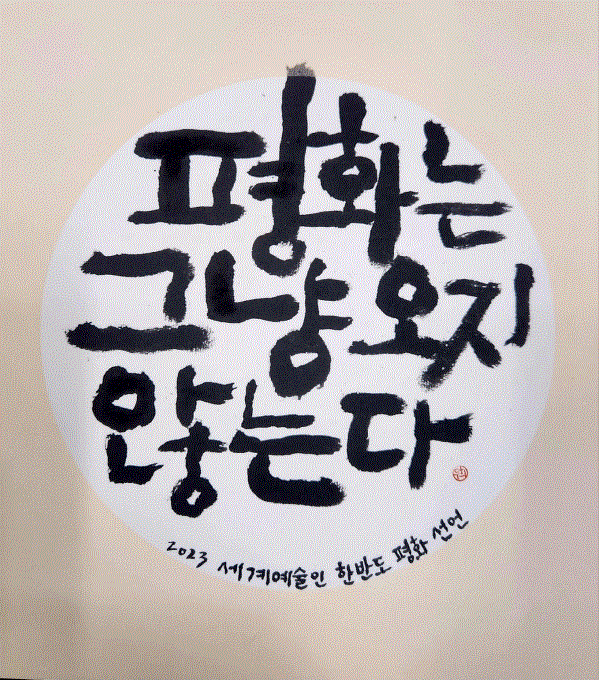 평화는
그냥 오지
않는다
2023 세계예술인 한반도 평화 선언